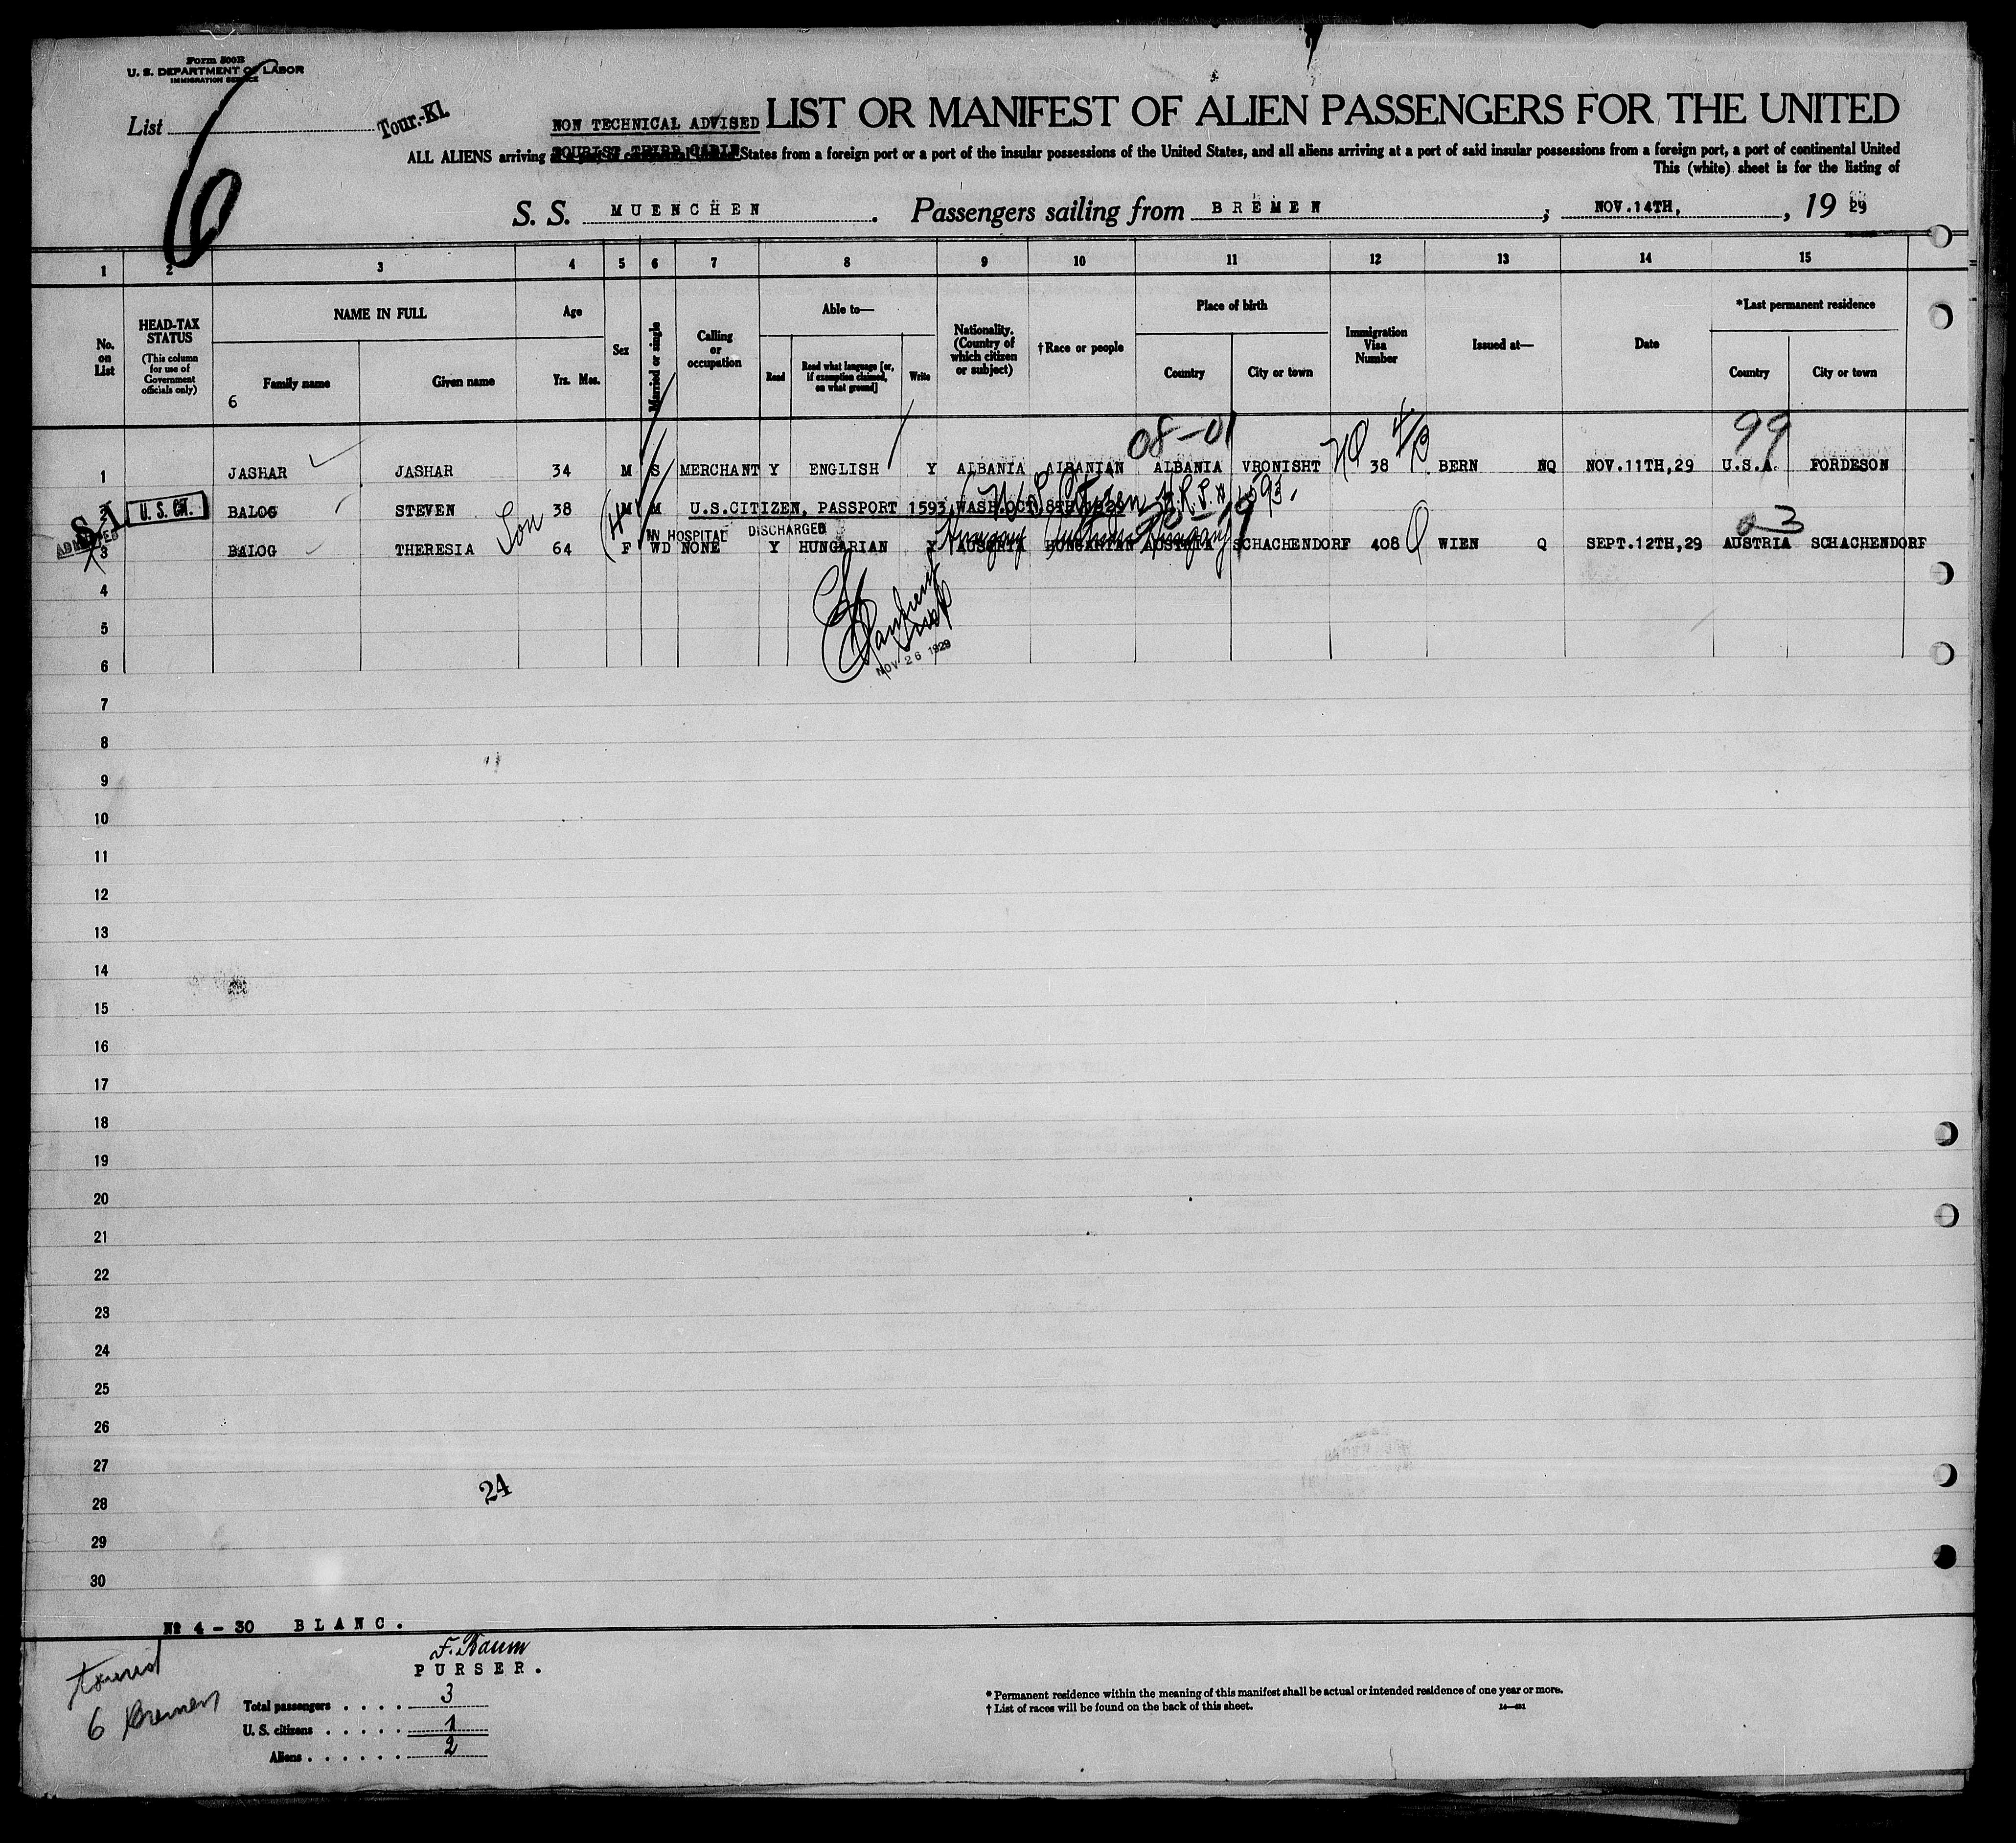 Form 500B
U. S. DEPARTMENT OF LABOR
IMMIGRATION SERVICE
List
6
Tour.-Kl.
NON TECHNICAL ADVISED
TOURIST THIRD CABIN
LIST OR MANIFEST OF ALIEN PASSENGERS FOR THE UNITED
ALL ALIENS arriving at a port of continental United States from a foreign port or a port of the insular possessions of the United States, and all aliens arriving at a port of said insular possessions from a foreign port, a port of continental United
This (white) sheet is for the listing of
S. S. MUENCHEN. Passengers sailing from BREMEN; NOV.14TH, , 19 29
1 2 3 4 5 6 7 8 9 10 11 12 13 14 15
No. on List
HEAD-TAX STATUS
(This column for use of Government officials only)
NAME IN FULL
Family name
Given name
6
Age
Yrs. Mos.
Sex
Married or single
Calling or occupation
Able to—
Read
Read what language [or, if exemption claimed, on what ground]
Write
Nationality. (Country of which citizen or subject)
†Race or people
Place of birth
Country
City or town
Immigration Visa Number
Issued at—
Date
*Last permanent residence
Country
City or town
08-01
99
1 JASHAR JASHAR 34 M S MERCHANT Y ENGLISH Y ALBANIA ALBANIAN ALBANIA VRONISHT NQ 38 4/3 BERN NQ NOV.11TH,29 U.S.A. FORDESON
2 U. S. CIT. BALOG STEVEN 38 M M U.S.CITIZEN, PASSPORT 1593,WASH.OCT.8TH,1929
U S Citizen 1593.
S.I.
ADMITTED
Son
IN HOSPITAL DISCHARGED
03
3 BALOG THERESIA 64 F WD NONE Y HUNGARIAN Y AUSTRIA HUNGARIAN AUSTRIA SCHACHENDORF 408 Q WIEN Q SEPT.12TH,29 AUSTRIA SCHACHENDORF
Hungary Hungary
4
5
NOV 26 1929
6
7
8
9
10
11
12
13
14
15
16
17
18
19
20
21
22
23
24
25
26
27
24
28
29
30
No 4 - 30 BLANC.
F. Baum
PURSER.
tourist
6 Bremen
Total passengers . . . . 3
U. S. citizens . . . . . 1
Aliens . . . . . . 2
* Permanent residence within the meaning of this manifest shall be actual or intended residence of one year or more.
† List of races will be found on the back of this sheet.
14—421